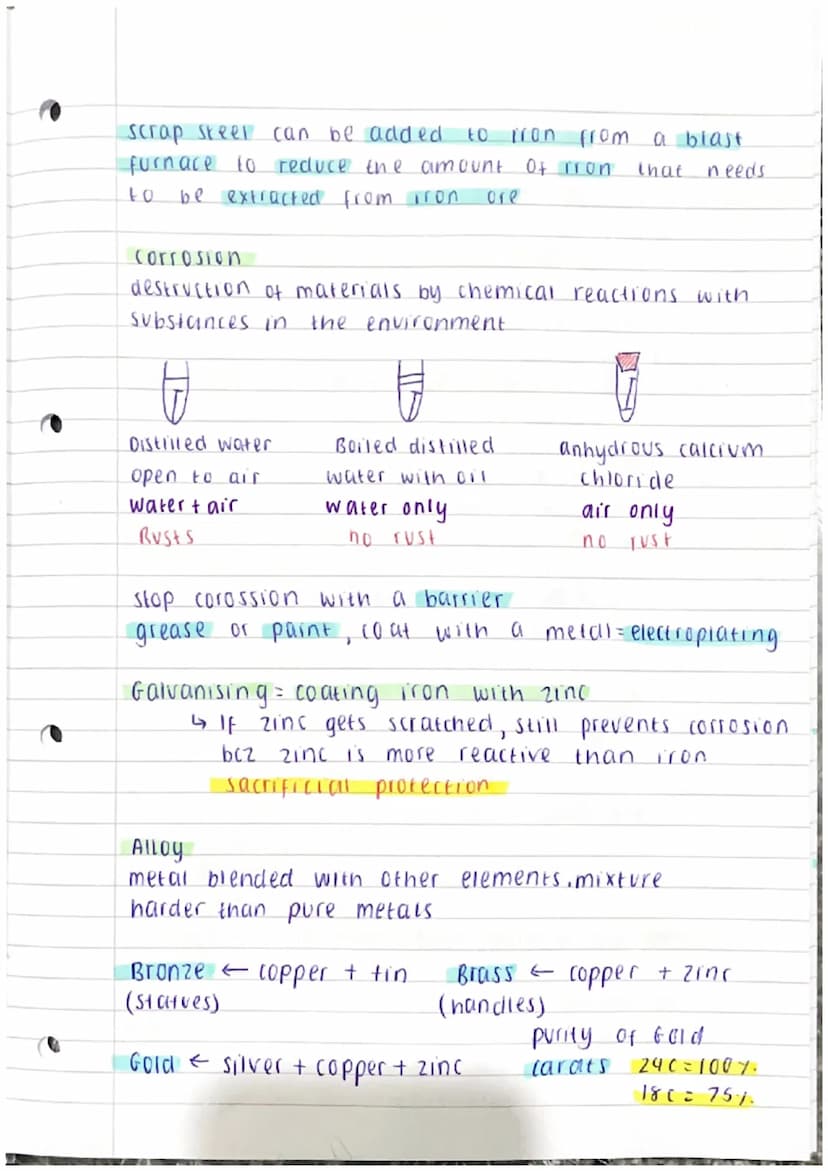 scrap steel can be added to iron from a blast
furnace to reduce the amount of iron that needs
to be extracted from iron ore
corrosion
destruction of materials by chemical reactions with
substances in the environment
Distilled water
open to air
water + air
Rusts
Boiled distilled
water with oil
water only
no rust
anhydrous calcium
chloride
air only
no rust
stop corossion with a barrier
grease or paint, coat with a metal = electroplating
Galvanising = coating iron with zinc
↳ If zinc gets scratched, still prevents corrosion
bcz zinc is more reactive than iron
sacrificial protection
Alloy
metal blended with other elements. mixture
harder than pure metals
Bronze ← copper + tin
(statues)
Brass ← copper + zinc
(handles)
Gold ← silver + copper + zinc
purity of Gold
carats 24c = 100%
18c = 75%